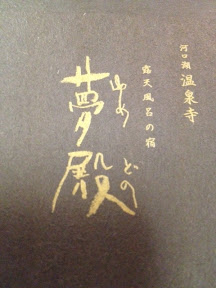 河口湖 温泉寺
露天風呂の宿
夢殿
ゆめ
どの